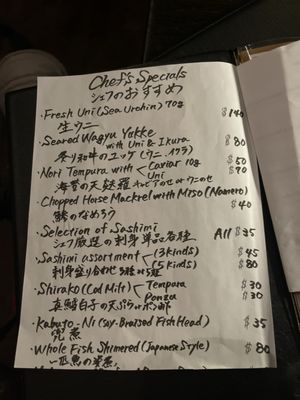 Chef's Specials
シェフのおすすめ
・Fresh Uni (Sea Urchin) 70g $140
生ウニ
・Seared Wagyu Yukke with Uni & Ikura $80
炙り和牛のユッケ (ウニ、イクラ)
・Nori Tempura with Caviar 10g $50
Uni $90
海苔の天麩羅 キャビアのせ or ウニのせ
・Chopped Horse Mackrel with Miso (Namero) $40
鯵のなめろう
・Selection of Sashimi All $35
シェフ厳選の刺身 単品各種
・Sashimi assortment (3kinds) $45
(5kinds) $80
刺身盛り合わせ 3種 or 5種
・Shirako (Cod Milt) Tempura $30
Ponzu $30
真鱈白子の天ぷら or ポン酢
・Kabuto-Ni (Soy-Braised Fish Head) $35
兜煮
・Whole Fish Simered (Japanese Style) $80